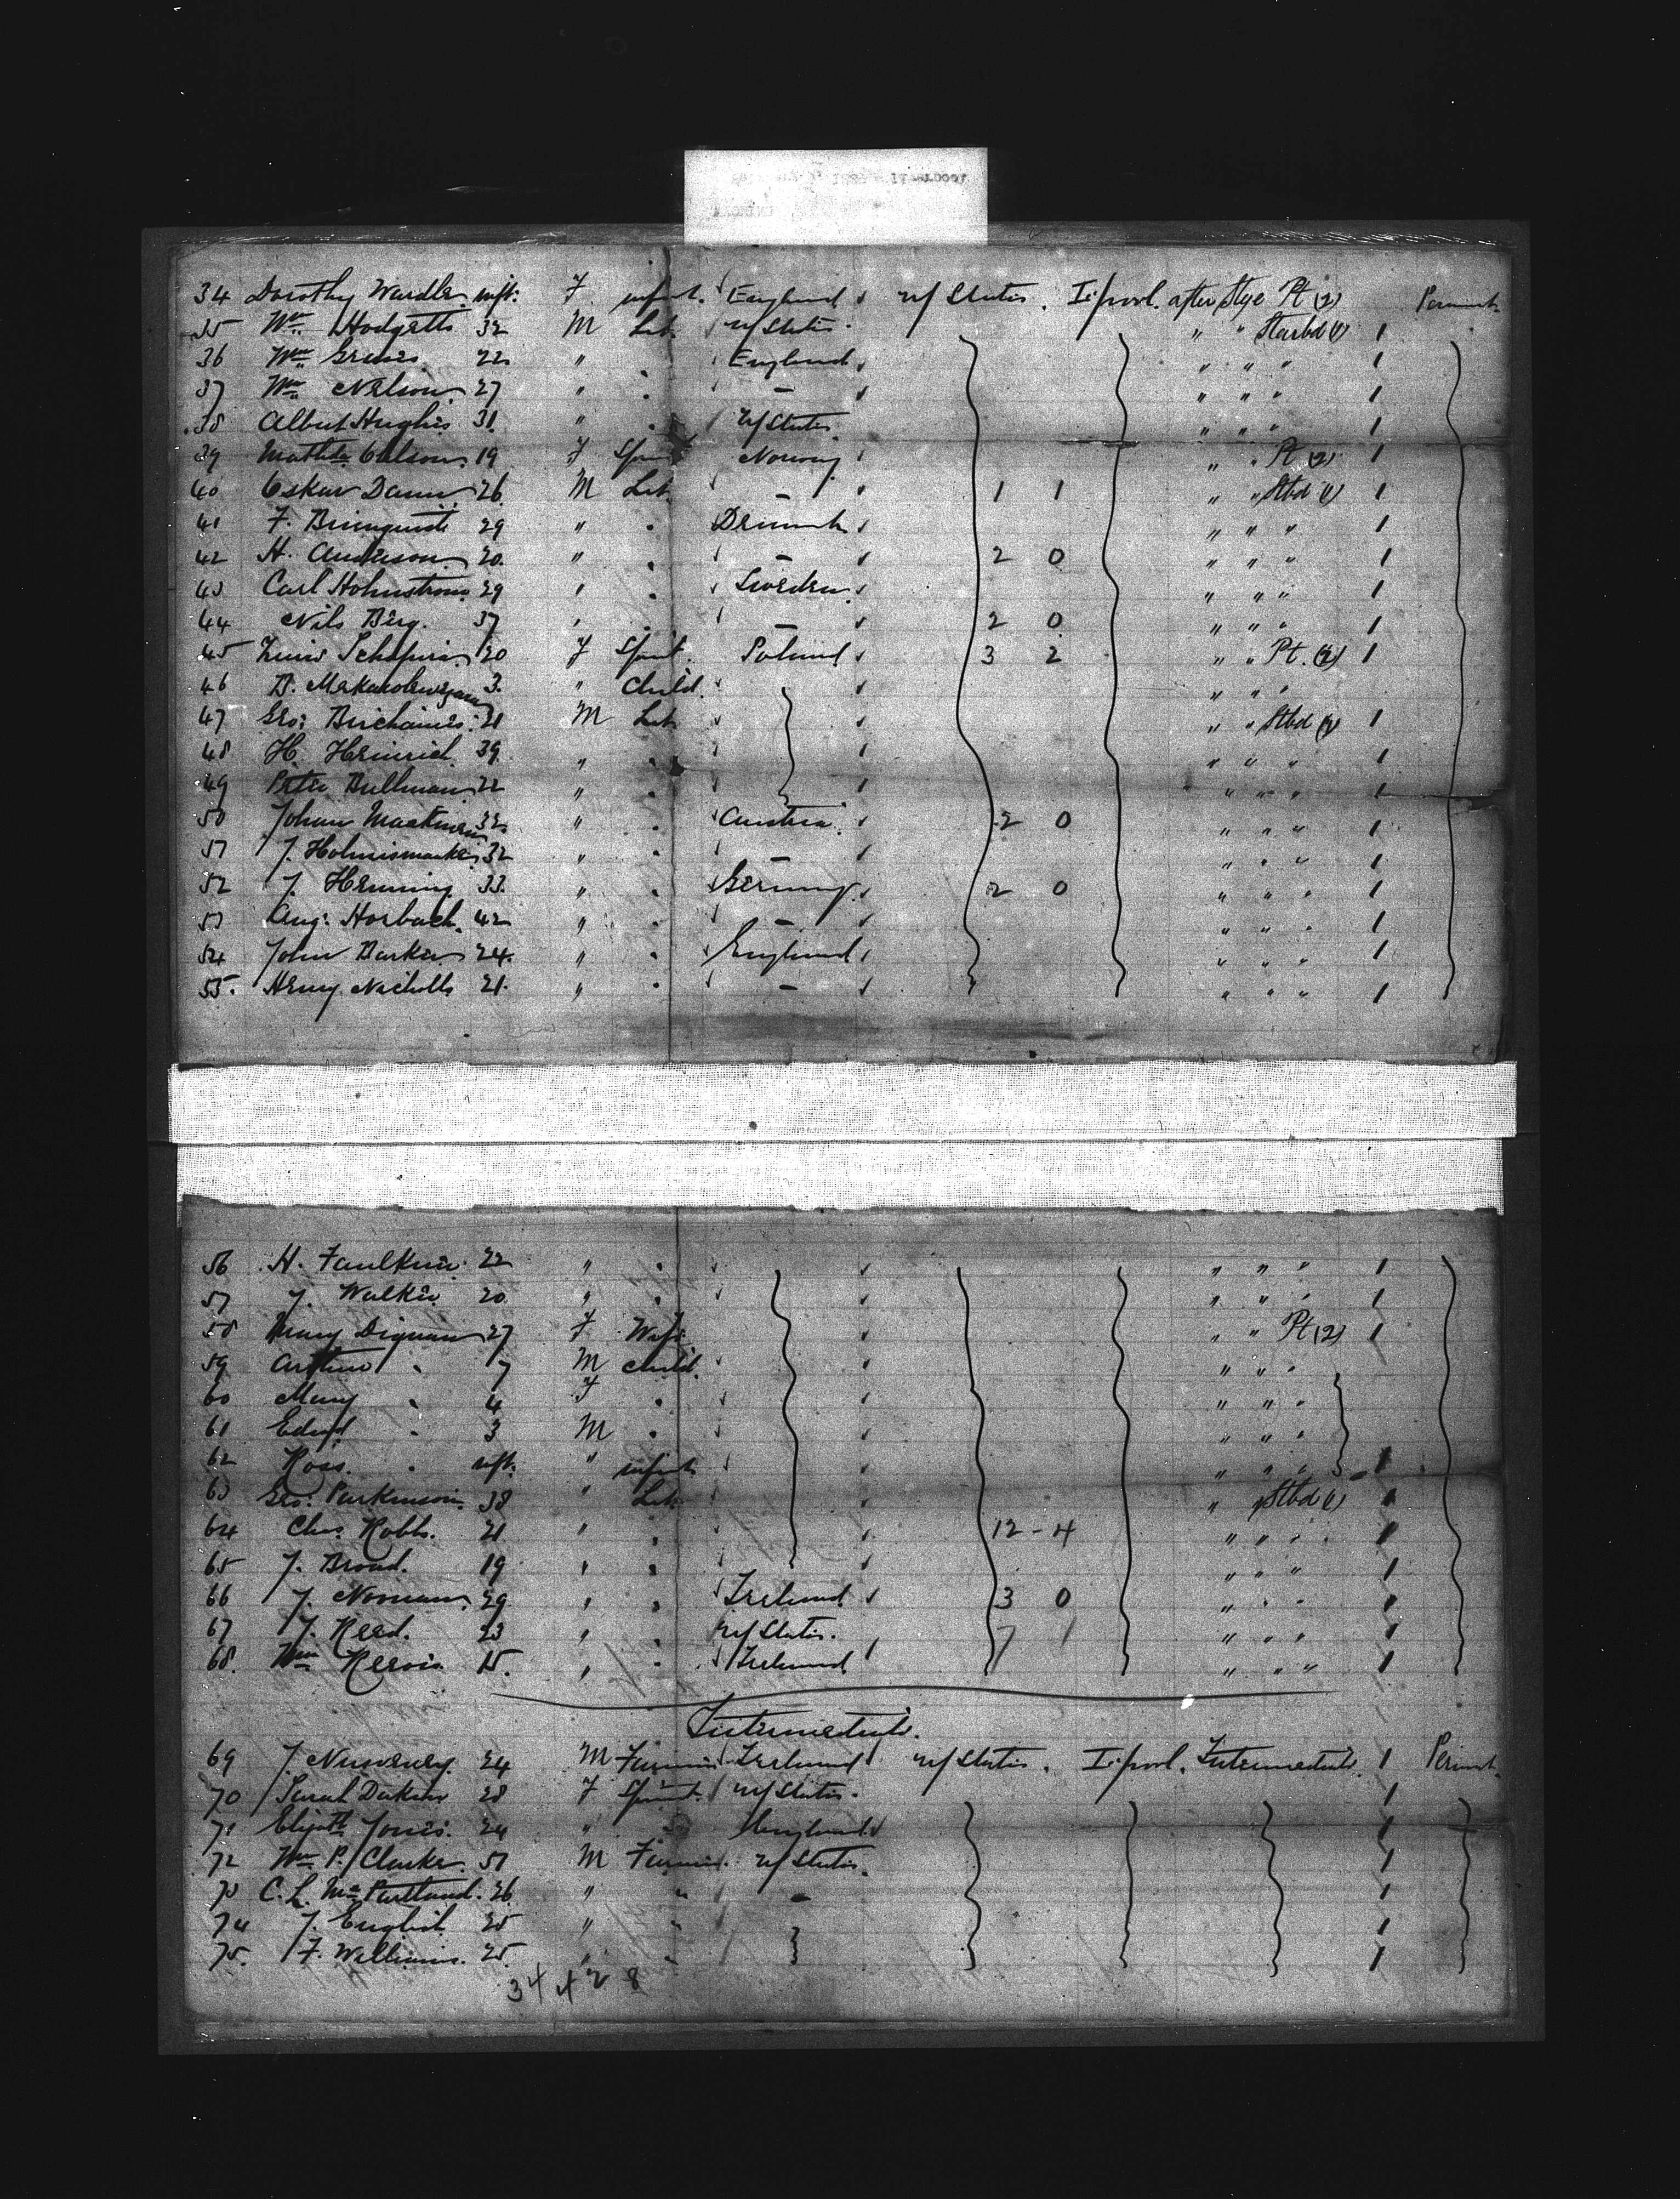 34 Dorothy Wardle. inft: F infant. England u/States. L'pool. after Stge Pt (2) Permnt.
35 Wm Hodgetts 32 M Lab. u/States. " " Starbd (1) 1
36 Wm 22 " England " " " 1
37 Wm Nelson. 27 " " - " " " 1
38 Albert Hughes 31. " u/States. " " " 1
39 Matilda Ohlson. 19 F Spinst Norway " " Pt (2) 1
40 Oskar 26 M Lab. - 1 1 " " Stbd (1) 1
41 F. 29 " " Denmark " " " 1
42 H. Anderson 20. " " - 2 0 " " " 1
43 Carl Holmstrom 29 " " Sweden. " " " 1
44 Nils Berg. 37 " " - 2 0 " " " 1
45 Schapira 20 F Spinst. Poland 3 2 " " Pt. (2) 1
46 3. " Child. " " "
47 Geo: 21 M Lab " " Stbd (1) 1
48 H. Heinrich. 39 " " " " " 1
49 Peter Bullman 22 " " " " " 1
50 Johan 32 " " Austria. 2 0 " " " 1
51 J. 32 " " - " " " 1
52 J. Henning 33. " " Germany. 2 0 " " " 1
53 Aug: Horbach. 42 " " - " " " 1
54 John Barker 24. " " England " " " 1
55. Henry Nicholls 21. " " - " " " 1
56 H. Faulkner. 22 " " " " " 1
57 J. Walker 20 " " " " " 1
58 Mary Dignam 27 F Wife " " Pt (2) 1
59 Arthur " 7 M child. " " "
60 Mary " 4 F " " " "
61 Edwd " 3 M " " " "
62 Ross. " inft. " infant " " " 1
63 Geo: Parkinson. 38 " Lab. " " Stbd (1) 1
64 Chas. Robb. 21 " " 12 - 4 " " " 1
65 J. Broad. 19 " " " " " 1
66 J. Noonan. 29 " " Ireland 3 0 " " " 1
67 J. Reed. 23 " " u/States. 7 1 " " " 1
68. Wm 15. " " Ireland " " " 1
Intermediate.
69 J. 24 M Farmer Ireland u/States. L'pool. Intermediate. 1 Permnt.
70 Sarah Dakin 28 F Spinst. u/States. 1
71 Elizth Jones. 24 " " England 1
72 Wm P. Clarke. 51 M Farmer. u/States. 1
73 C. L. McPartland. 26 " " - 1
74 J. English 25 " " 1
75. F. Williams. 25. " " 1
34 4 2 8